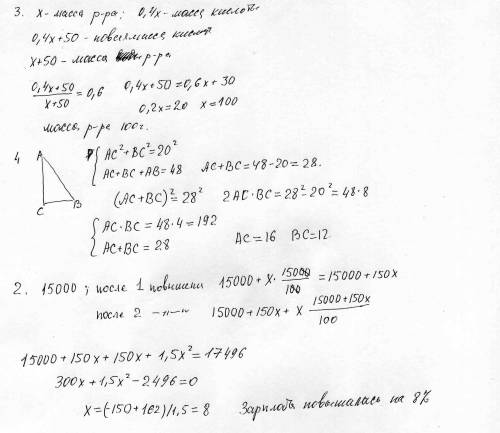 3. x - масса р-ра; 0,4x - масса кислоты
0,4x+50 - новая масса кислот
x+50 - масса р-ра
(0,4x+50)/(x+50) = 0,6   0,4x+50 = 0,6x+30
0,2x = 20   x = 100
масса р-ра 100 г.
4
A
C
B
{ AC²+BC²=20²
AC+BC+AB=48   AC+BC=48-20=28.
(AC+BC)²=28²   2AC·BC=28²-20²=48·8
{ AC·BC=48·4=192
AC+BC=28   AC=16   BC=12
2. 15000; после 1 повышени   15000+x·15000/100=15000+150x
после 2 -"-   15000+150x+x (15000+150x)/100
15000+150x+150x+1,5x²=17496
300x+1,5x²-2496=0
x=(-150+162)/1,5=8   Зарплата повышалась на 8%